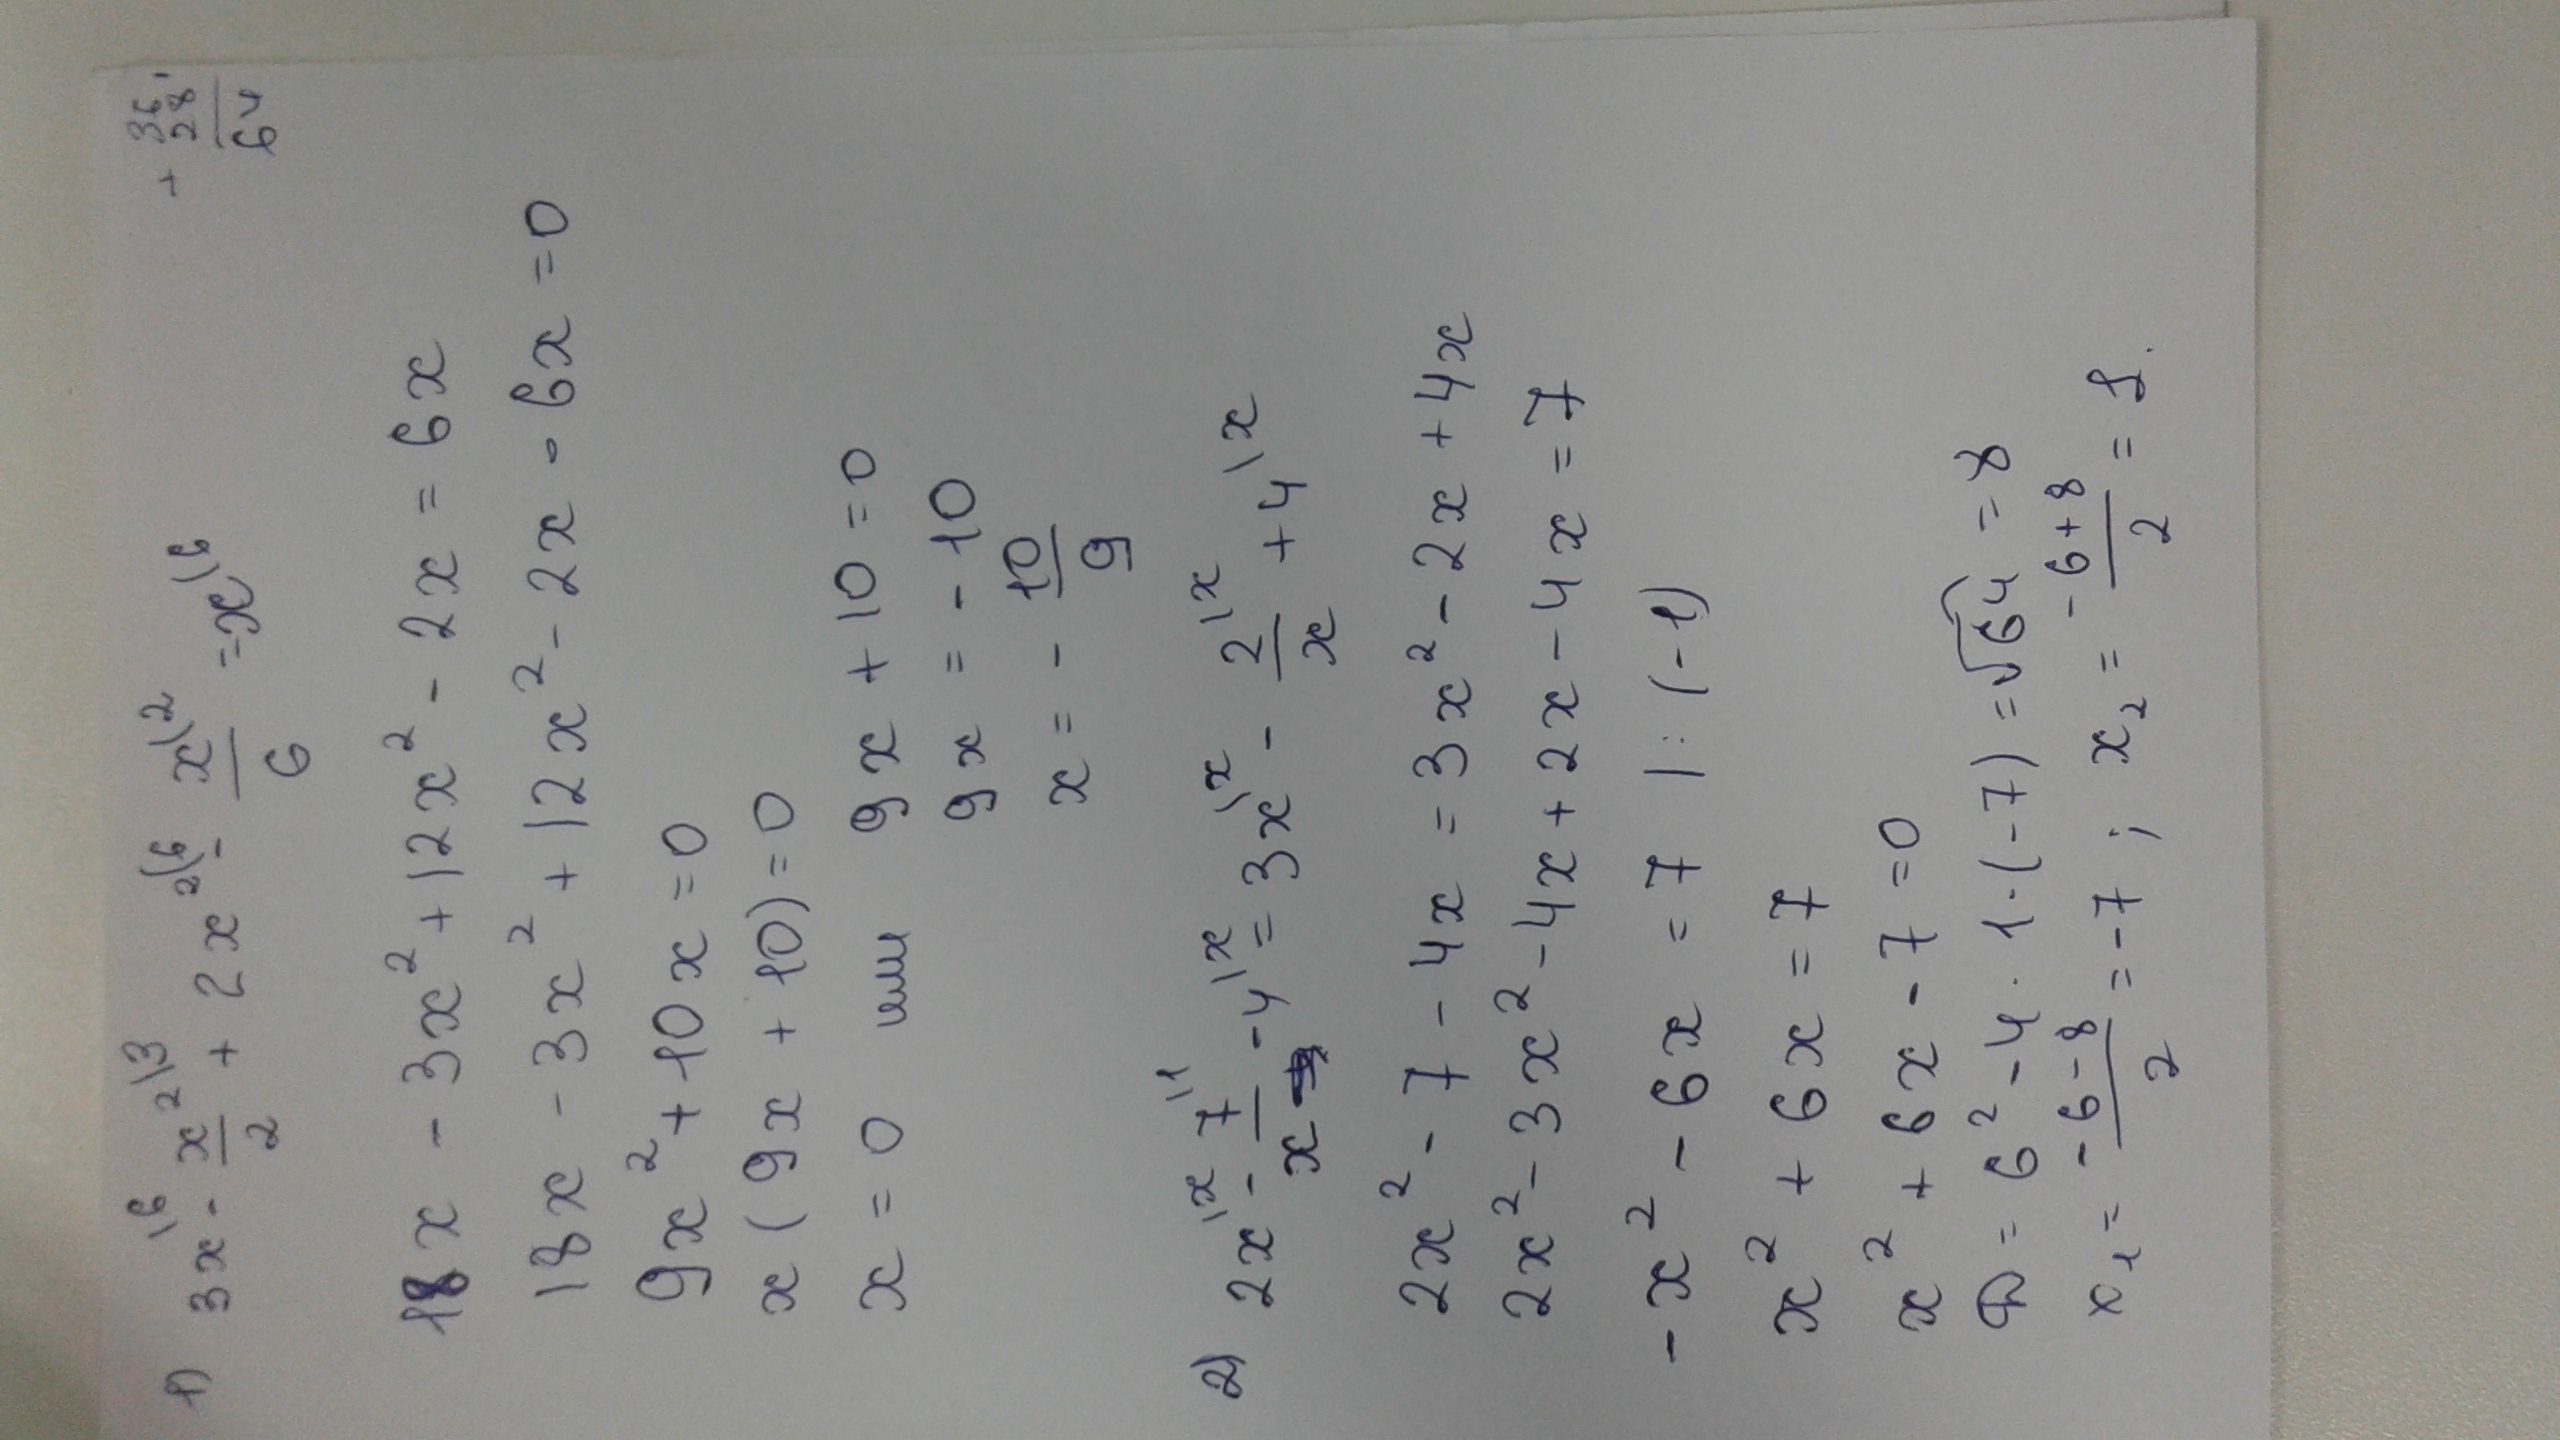 + 36
28
64
1) 3x\6 - x²/2\3 + 2x²\6 - x/6\2 = x\6
18x - 3x² + 12x² - 2x = 6x
18x - 3x² + 12x² - 2x - 6x = 0
9x² + 10x = 0
x(9x + 10) = 0
x = 0 или 9x + 10 = 0
9x = -10
x = - 10/9
2) 2x\x - 7/x\1 - 4\x = 3x\x - 2/x\x + 4\x
2x² - 7 - 4x = 3x² - 2x + 4x
2x² - 3x² - 4x + 2x - 4x = 7
-x² - 6x = 7 | : (-1)
x² + 6x = 7
x² + 6x - 7 = 0
D = 6² - 4 · 1 · (-7) = √64 = 8
x₁ = (-6-8)/2 = -7 ; x₂ = (-6+8)/2 = 1.